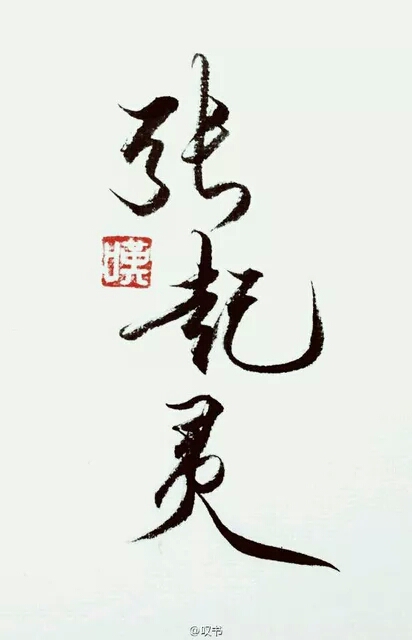 张起灵
嘆
@叹书